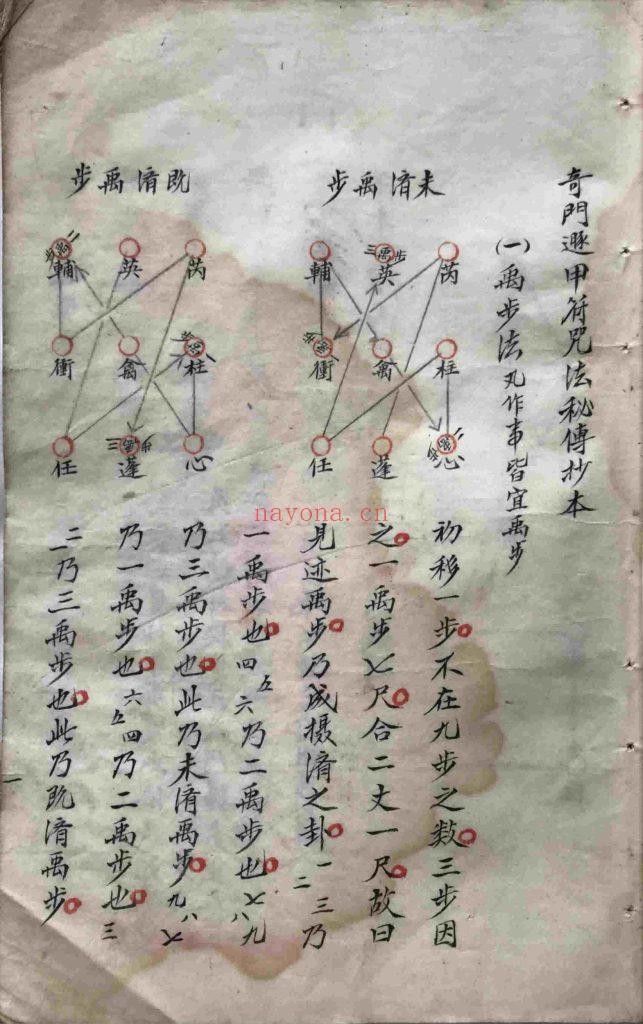 奇門遯甲符咒法秘傳抄本
(一)禹步法 凡作事皆宜禹步
未濟禹步
芮 英 輔
三禹步
柱 禽 衝
心 蓬 任
既濟禹步
芮 英 輔
柱 禽 衝
心 蓬 任
初移一步不在九步之数三步因
之一禹步七尺合二丈一尺故曰
見迹禹步乃成摄濟之卦一二三乃
一禹步也四五六乃二禹步也七八九
乃三禹步也此乃未濟禹步九八七
乃一禹步也六五四乃二禹步也三
二一乃三禹步也此乃既濟禹步
一
nayona.cn